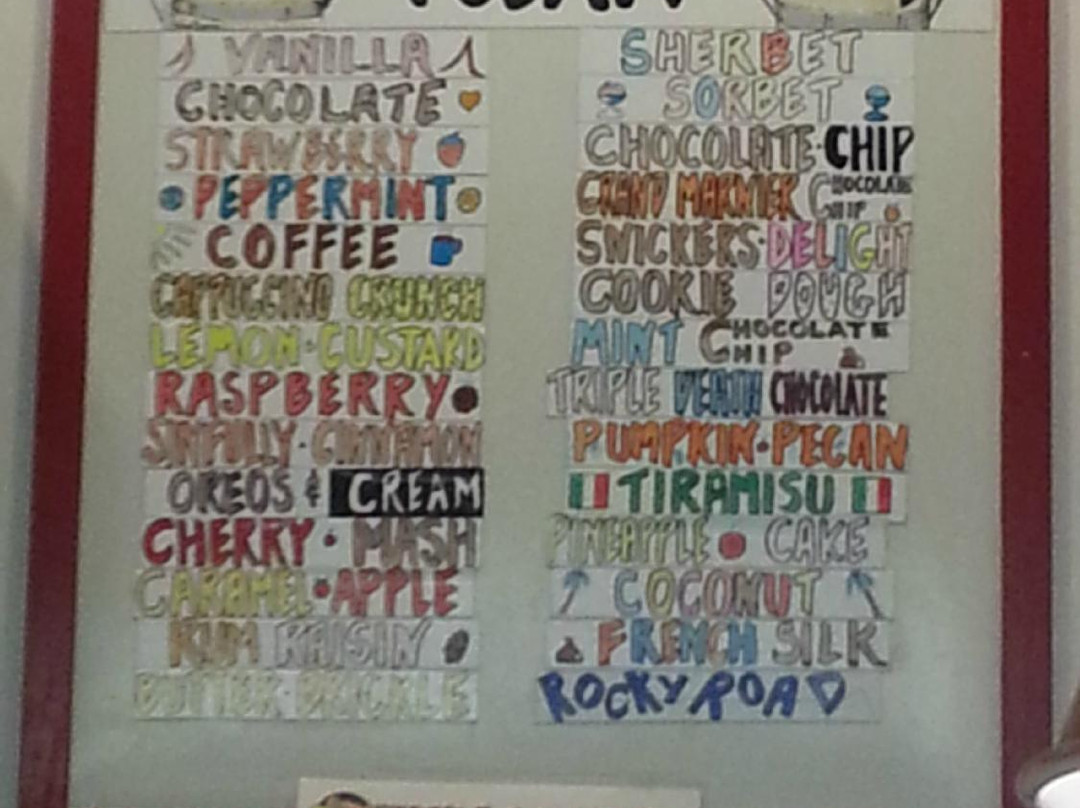 VANILLA
CHOCOLATE
STRAWBERRY
PEPPERMINT
COFFEE
CAPPUCCINO CRUNCH
LEMON CUSTARD
RASPBERRY
SINFULLY CINNAMON
OREOS & CREAM
CHERRY MASH
CARAMEL APPLE
RUM RAISIN
BUTTER BRICKLE
SHERBET
SORBET
CHOCOLATE CHIP
GRAND MARNIER CHOCOLATE CHIP
SNICKERS DELIGHT
COOKIE DOUGH
MINT CHOCOLATE CHIP
TRIPLE DEATH CHOCOLATE
PUMPKIN PECAN
TIRAMISU
PINEAPPLE CAKE
COCONUT
FRENCH SILK
ROCKY ROAD